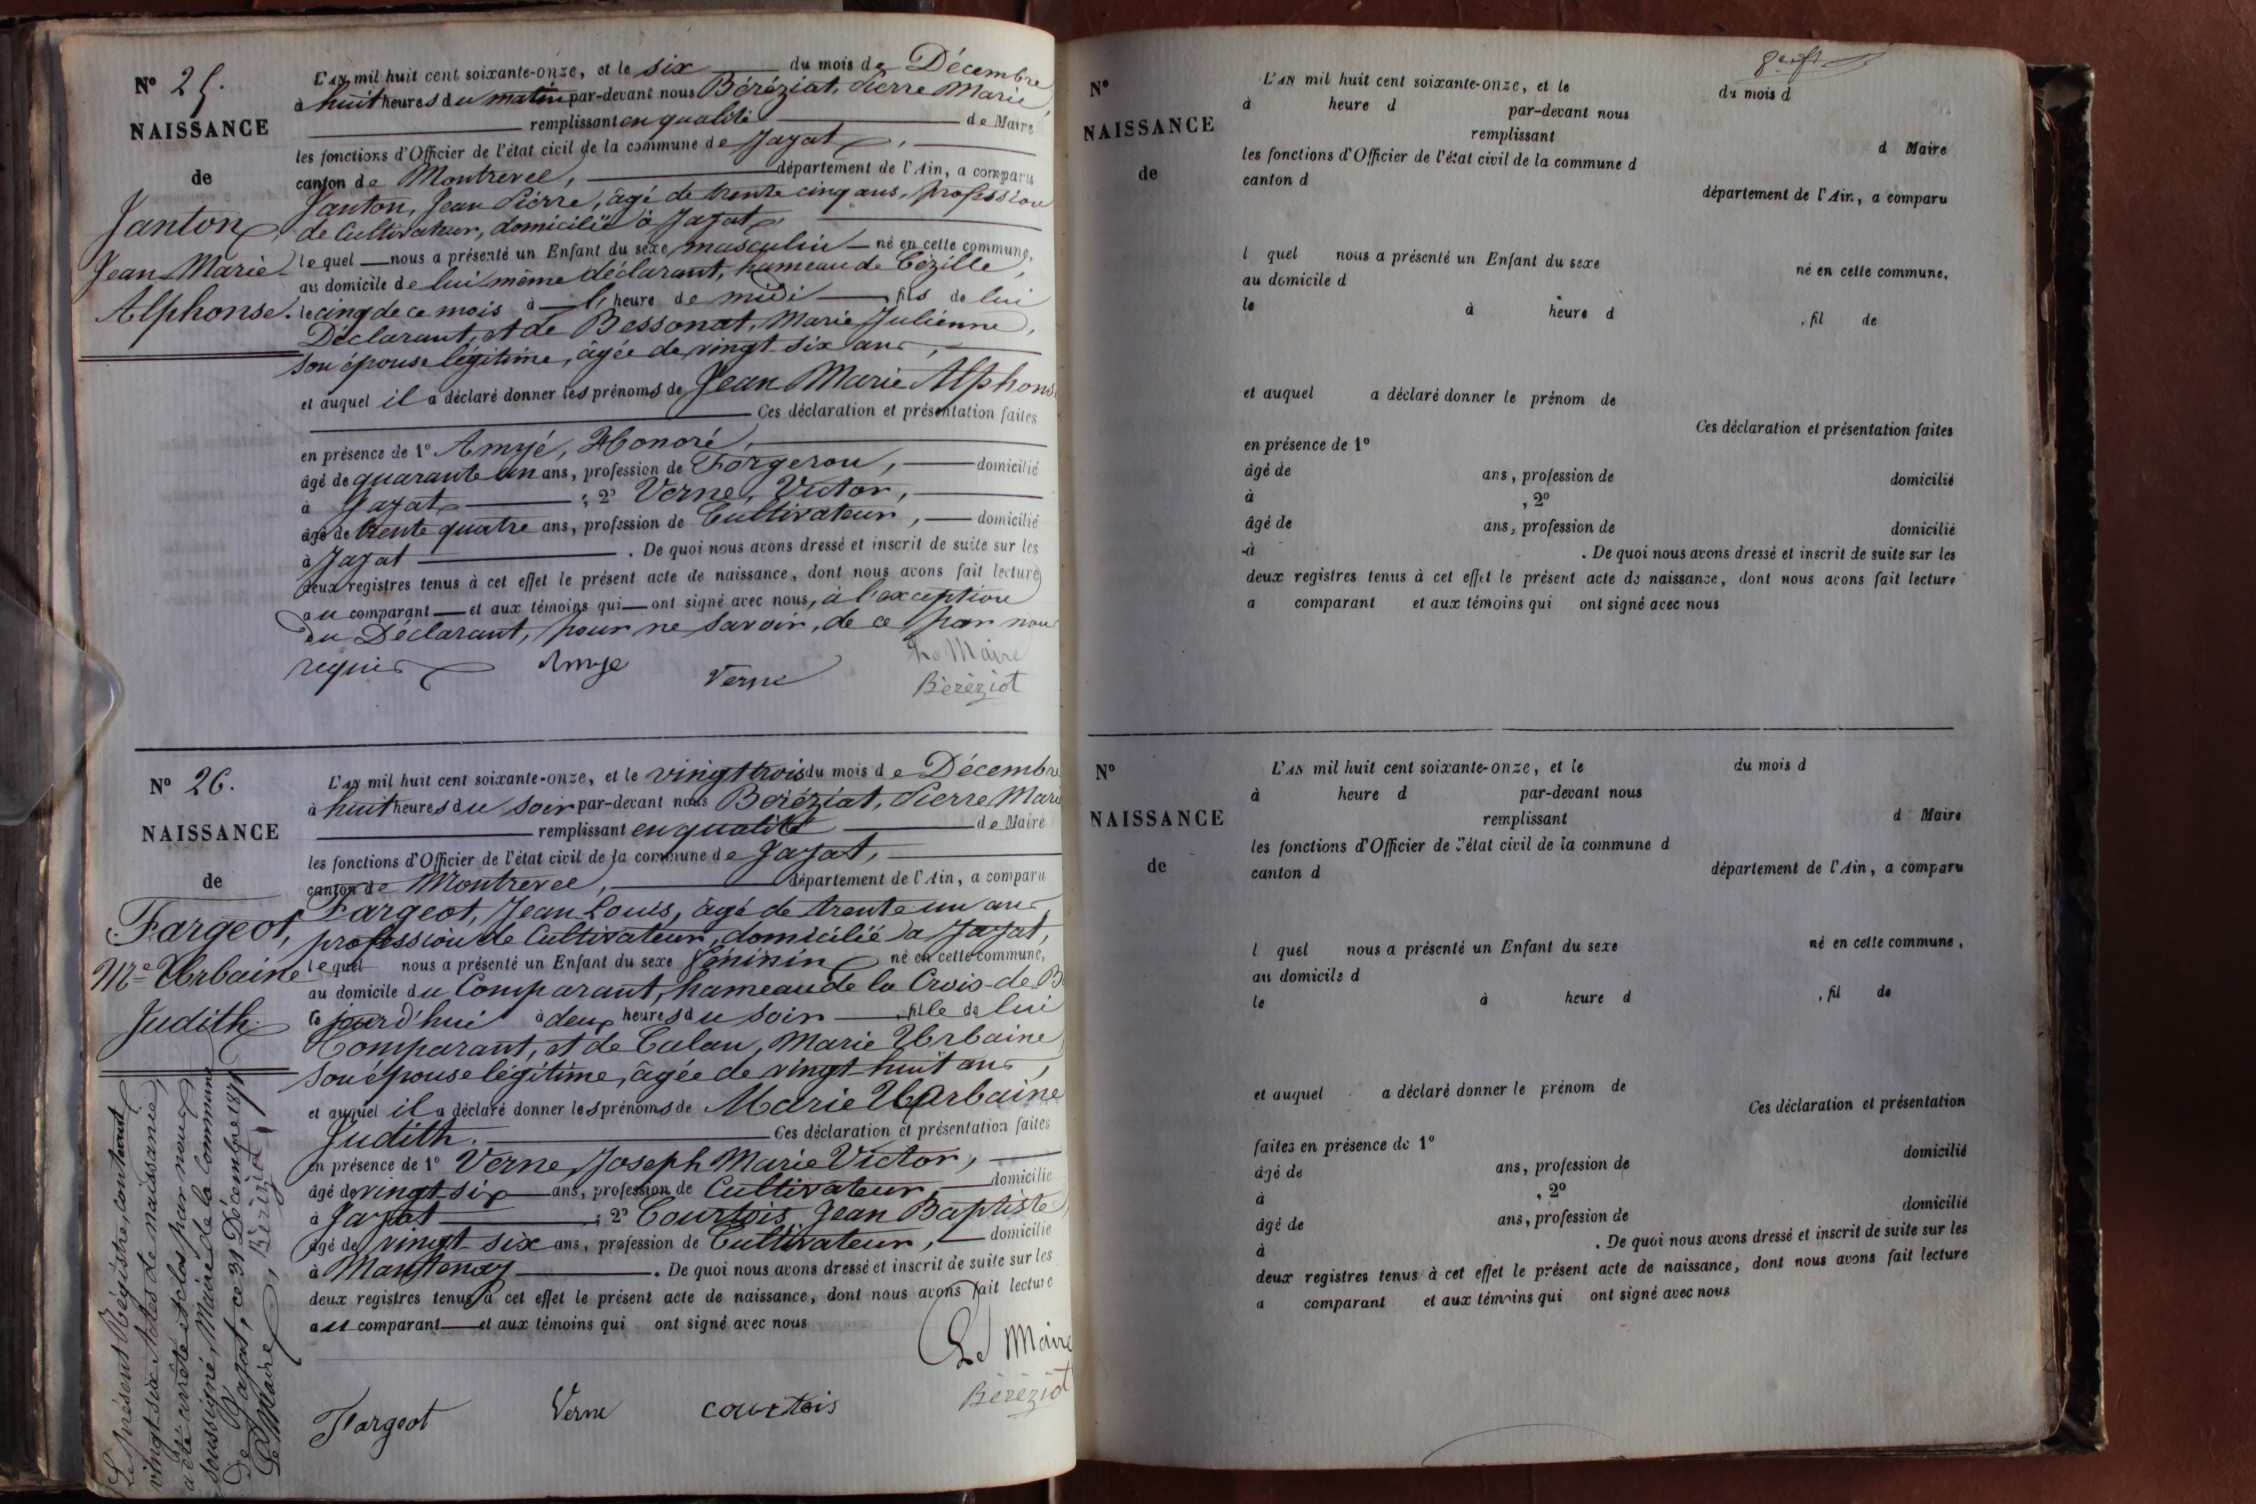 N° 25.
NAISSANCE
de
Janton
Jean Marie
Alphonse.
L'AN mil huit cent soixante-onze, et le six du mois de Décembre
à huit heures du matin par-devant nous Béréziat, Pierre Marie,
remplissant en qualité de Maire
les fonctions d'Officier de l'état civil de la commune de Jayat,
canton de Montrevel, département de l'Ain, a comparu
Janton, Jean Pierre, âgé de trente cinq ans, profession
de Cultivateur, domicilié à Jayat
lequel nous a présenté un Enfant du sexe masculin né en cette commune,
au domicile de lui même déclarant, hameau de Cézille,
le cinq de ce mois à l' heure de midi fils de lui
Déclarant, et de Bessonat, Marie Julienne,
son épouse légitime, âgée de vingt-six ans,
et auquel il a déclaré donner les prénoms de Jean Marie Alphons
Ces déclaration et présentation faites
en présence de 1° Amyé, Honoré,
âgé de quarante un ans, profession de Forgeron, domicilié
à Jayat ; 2° Verne, Victor,
âgé de trente quatre ans, profession de Cultivateur, domicilié
à Jayat . De quoi nous avons dressé et inscrit de suite sur les
deux registres tenus à cet effet le présent acte de naissance, dont nous avons fait lecture
au comparant et aux témoins qui ont signé avec nous, à l'exception
du Déclarant, pour ne savoir, de ce par nou
requis Amye Verne Le Maire
Béréziat
N° 26.
NAISSANCE
de
Fargeot,
Mie Urbaine
Judith.
L'AN mil huit cent soixante-onze, et le vingt trois du mois de Décembre
à huit heures du soir par-devant nous Béréziat, Pierre Mari
remplissant en qualité de Maire
les fonctions d'Officier de l'état civil de la commune de Jayat,
canton de Montrevel, département de l'Ain, a comparu
Fargeot, Jean Louis, âgé de trente un ans
profession de Cultivateur, domicilié à Jayat,
lequel nous a présenté un Enfant du sexe féminin né en cette commune,
au domicile du Comparant, hameau de la Croix-de-B
Ce jourd'hui à deux heures du soir fille de lui
Comparant, et de Calan, Marie Urbaine
son épouse légitime, âgée de vingt-huit ans,
et auquel il a déclaré donner les prénoms de Marie Urbaine
Judith. Ces déclaration et présentation faites
en présence de 1° Verne, Joseph Marie Victor,
âgé de vingt-six ans, profession de Cultivateur, domicilié
à Jayat ; 2° Courtois Jean Baptiste,
âgé de vingt-six ans, profession de Cultivateur, domicilié
à Mantenay . De quoi nous avons dressé et inscrit de suite sur les
deux registres tenus à cet effet le présent acte de naissance, dont nous avons fait lecture
au comparant et aux témoins qui ont signé avec nous
Le Maire
Béréziat
Fargeot Verne courtois
Le présent Régistre, contenant
vingt six Actes de naissance,
a été arrêté et clos par nous
soussigné, Maire de la Commune
de Jayat, ce 31 Décembre 1871
Le Maire, Béréziat
N°
NAISSANCE
de
L'AN mil huit cent soixante-onze, et le du mois d
à heure d par-devant nous
remplissant d Maire
les fonctions d'Officier de l'état civil de la commune d
canton d département de l'Ain, a comparu
l quel nous a présenté un Enfant du sexe né en cette commune,
au domicile d
le à heure d , fil de
et auquel a déclaré donner le prénom de
Ces déclaration et présentation faites
en présence de 1°
âgé de ans, profession de domicilié
à , 2°
âgé de ans, profession de domicilié
à . De quoi nous avons dressé et inscrit de suite sur les
deux registres tenus à cet effet le présent acte de naissance, dont nous avons fait lecture
a comparant et aux témoins qui ont signé avec nous
N°
NAISSANCE
de
L'AN mil huit cent soixante-onze, et le du mois d
à heure d par-devant nous
remplissant d Maire
les fonctions d'Officier de l'état civil de la commune d
canton d département de l'Ain, a comparu
l quel nous a présenté un Enfant du sexe né en cette commune,
au domicile d
le à heure d , fil de
et auquel a déclaré donner le prénom de
Ces déclaration et présentation
faites en présence de 1° domicilié
âgé de ans, profession de
à , 2°
âgé de ans, profession de domicilié
à . De quoi nous avons dressé et inscrit de suite sur les
deux registres tenus à cet effet le présent acte de naissance, dont nous avons fait lecture
a comparant et aux témoins qui ont signé avec nous